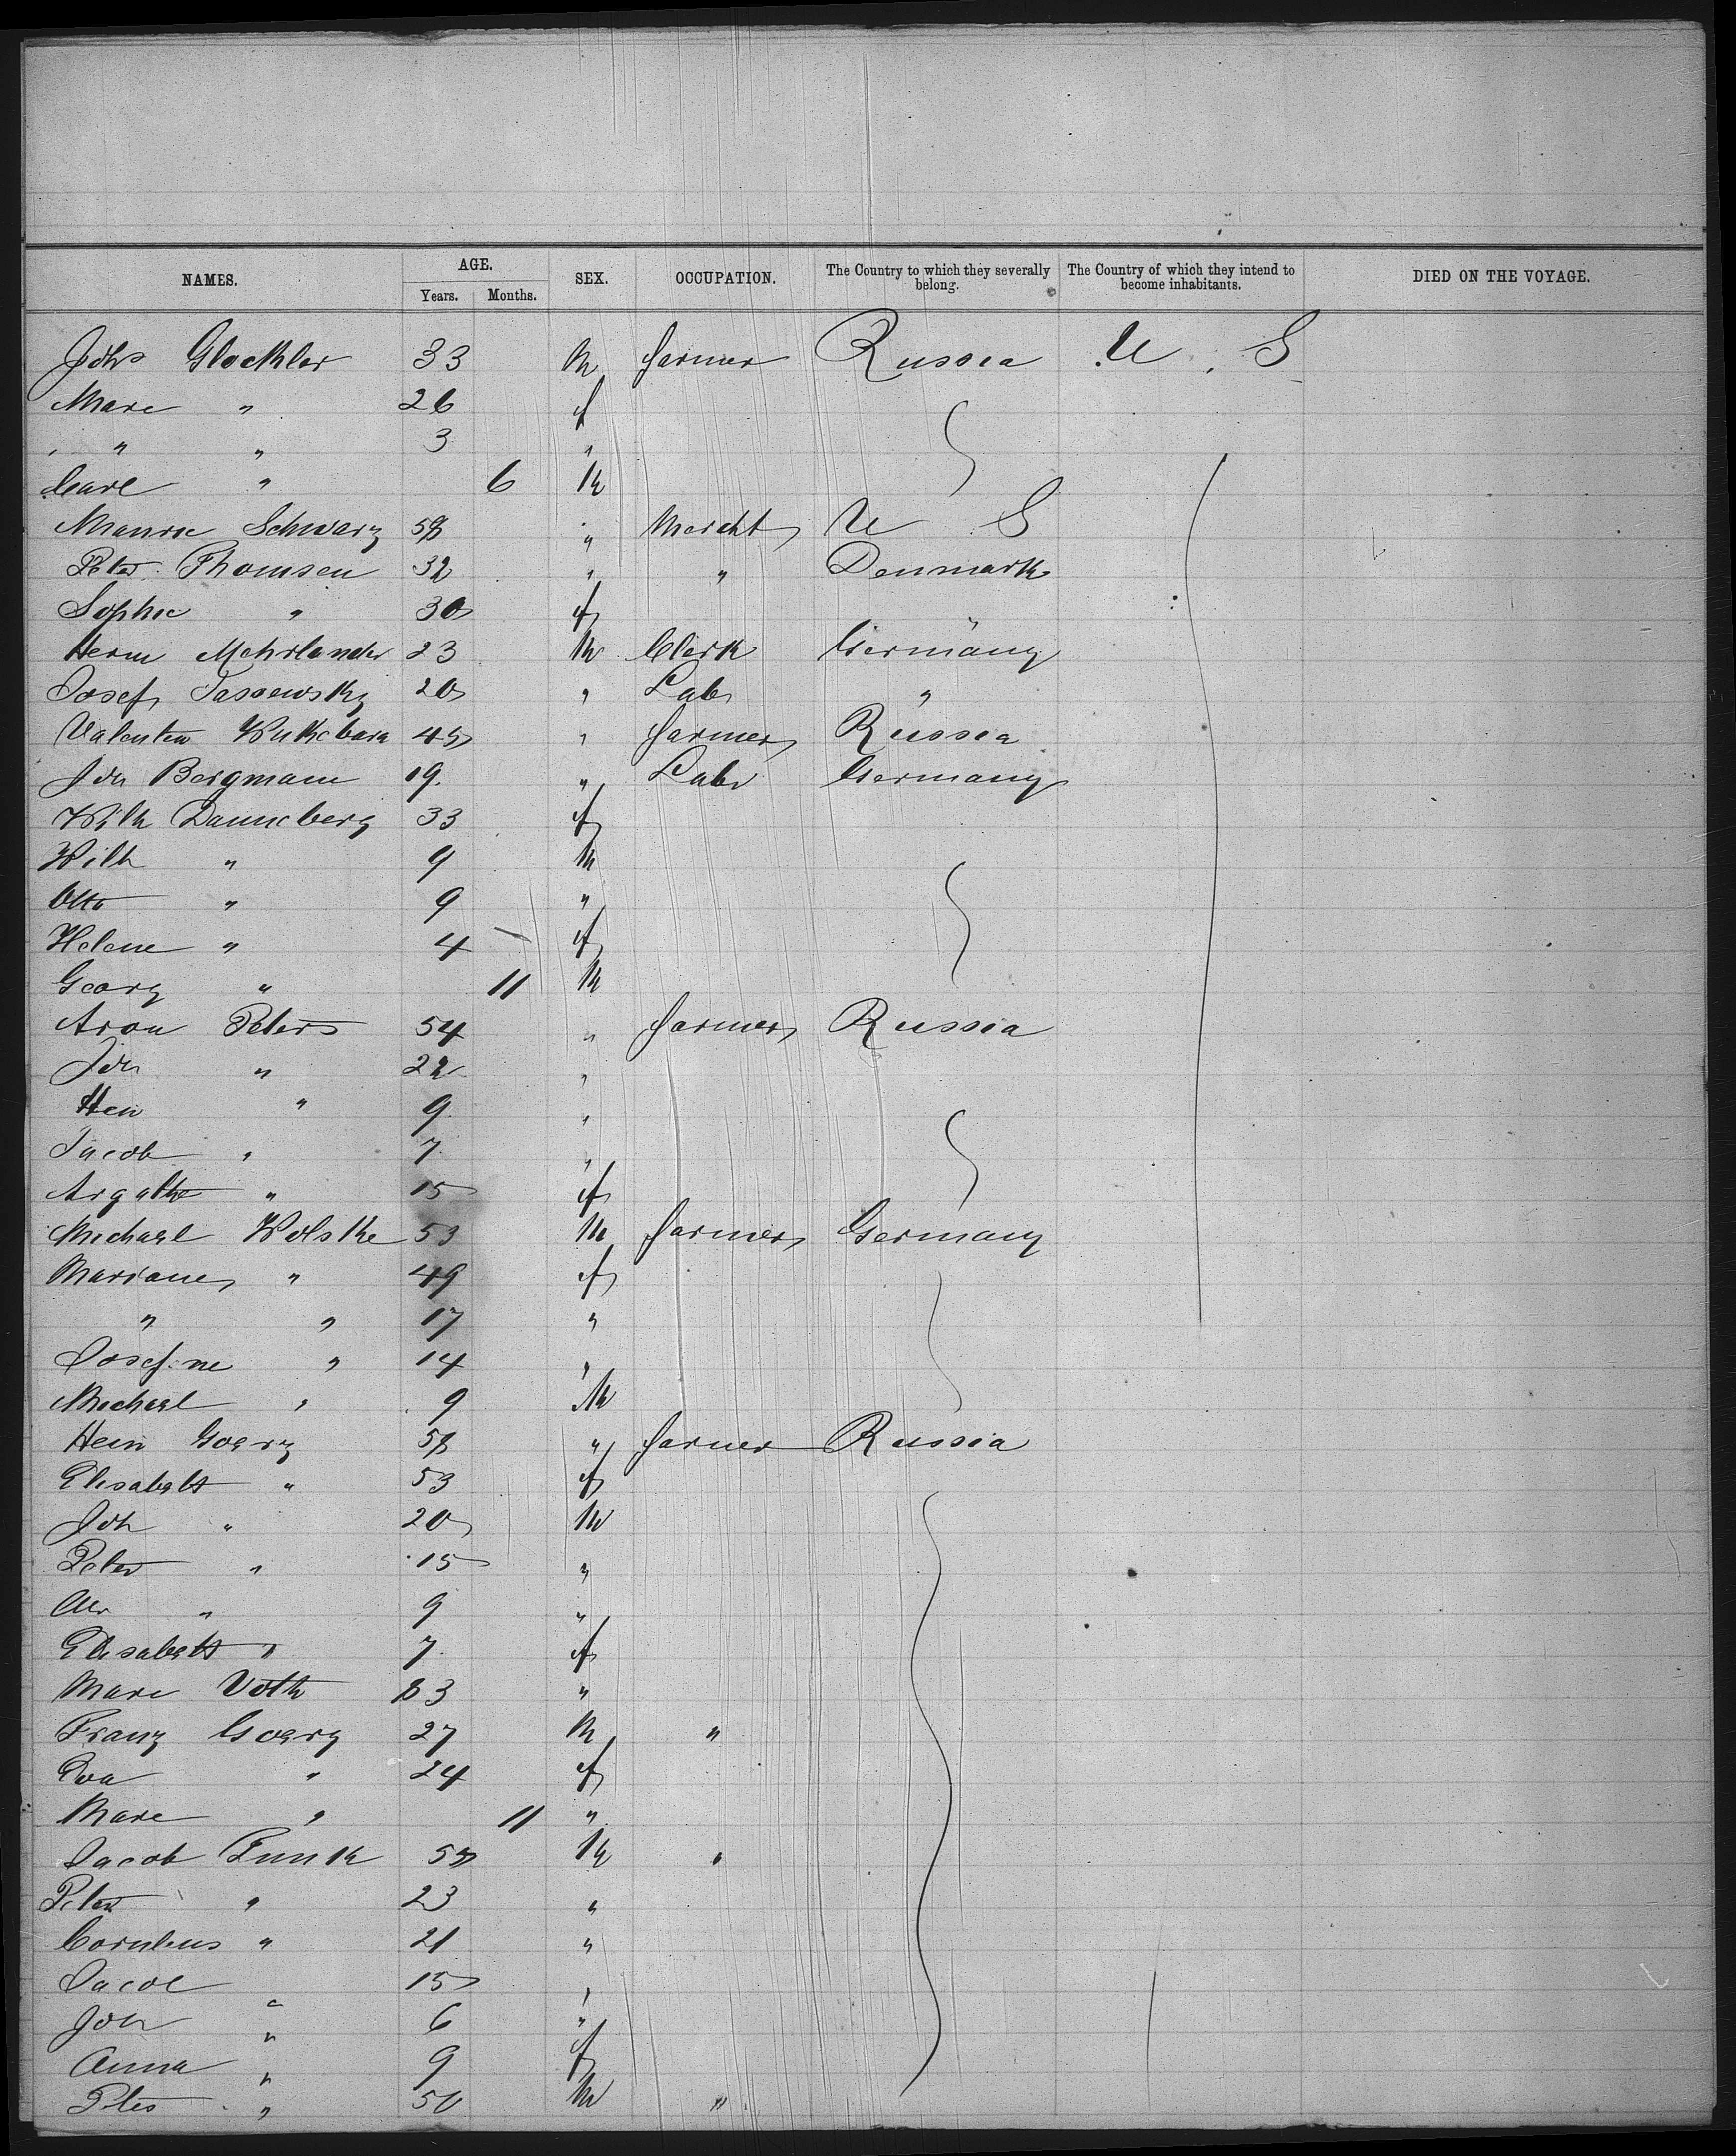 NAMES. AGE. SEX. OCCUPATION. The Country to which they severally belong. The Country of which they intend to become inhabitants. DIED ON THE VOYAGE.
Years. Months.
Johs Glockler 33 m farmer Russia U. S
Marie " 26 f
" " 3 "
Carl " 6 m
Schwarz 58 " Mercht U S
Peter Thomsen 32 " " Denmark
Sophie " 30 f "
Herm Mehrlander 23 m Clerk Germany
Josef 20 " Lab "
Valentin 45 " farmer Russia
Joh Bergmann 19 " Labr Germany
Wilh Danneberg 33 f
Wilh " 9 m
Otto " 9 "
Helene " 4 f
Georg " 11 m
Aron Peters 54 " farmer Russia
Joh " 22 "
Hein " 9 "
Jacob " 7 "
Argathe " 15 f
Michael Wolske 53 m farmer Germany
Mariane " 49 f
" " 17 "
Josefine " 14 "
Michael " 9 m
Hein Goerz 58 " farmer Russia
Elisabeth " 53 f
Joh " 20 m
Peter " 15 "
" 9 "
Elisabeth " 7 f
Marie Voth 83 "
Franz Goerz 27 m "
Eva " 24 f
Marie " 11 "
Jacob Funk m "
Peter " 23 "
Cornelius " 21 "
Jacob " 15 "
Joh " 6 "
Anna " 9 f
Peter " 50 m "